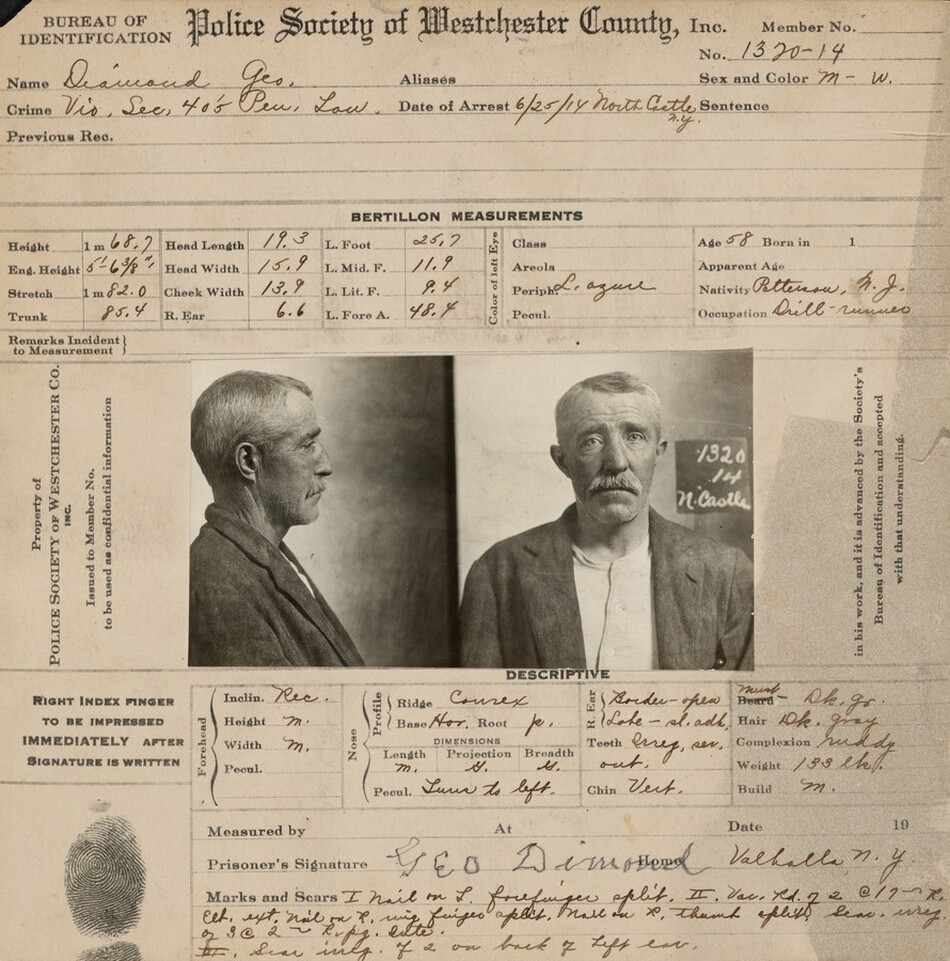 BUREAU OF IDENTIFICATION Police Society of Westchester County, Inc. Member No.
No. 1320-14
Name Diamond Geo. Aliases Sex and Color M - W.
Crime Vio. Sec. 405 Pen. Law. Date of Arrest 6/25/14 North Castle N.Y. Sentence
Previous Rec.
BERTILLON MEASUREMENTS
Height 1 m 68.7 Head Length 19.3 L. Foot 25.7 Color of left Eye Class Age 58 Born in 1
Eng. Height 5'-6 3/8" Head Width 15.9 L. Mid. F. 11.9 Areola Apparent Age
Stretch 1 m 82.0 Cheek Width 13.9 L. Lit. F. 9.4 Periph. L. azure Nativity Patterson, N.J.
Trunk 85.4 R. Ear 6.6 L. Fore A. 48.4 Pecul. Occupation Drill-runner
Remarks Incident to Measurement
Property of
POLICE SOCIETY OF WESTCHESTER CO.
INC.
Issued to Member No.
to be used as confidential information
1320
14
N. Castle
in his work, and it is advanced by the Society's
Bureau of Identification and accepted
with that understanding.
DESCRIPTIVE
RIGHT INDEX FINGER
TO BE IMPRESSED
IMMEDIATELY AFTER
SIGNATURE IS WRITTEN
Forehead Inclin. Rec. Nose Profile Ridge Convex R. Ear Border - open Must- Beard Dk. gr.
Height M. Base Hor. Root p. Lobe - sl. adh. Hair Dk. gray
Width M. DIMENSIONS Teeth Irreg, sev. Complexion ruddy
Pecul. Length Projection Breadth out. Weight 133 lb.
M. G. G.
Pecul. Turns to left. Chin Vert. Build M.
Measured by At Date 19
Prisoner's Signature GEO Dimond Home Valhalla N.Y.
Marks and Scars I Nail on L. forefinger split. II. Vac. Rd. of 2 @ 17 R.
Elb. ext. Nail on R. mid finger split. Nail on R. thumb split, Scar. irreg.
of 3 @ 2
III. Scar irreg. of 2 on back of left ear.